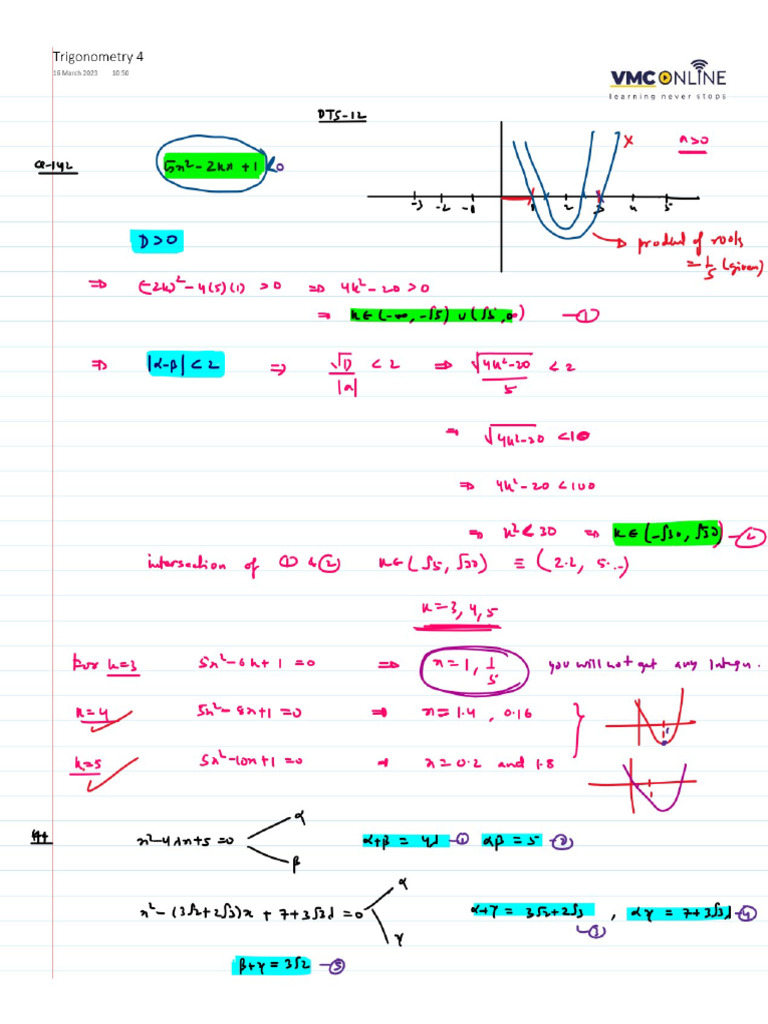 Trigonometry 4
16 March 2023 10:50
VMC ONLINE
learning never stops
DTS-12
Q-142
5x² - 2kx + 1 < 0
x
x>0
-3 -2 -1 1 2 3 4 5
D > 0
product of roots
= 1/5 (given)
⇒ (-2k)² - 4(5)(1) > 0 ⇒ 4k² - 20 > 0
⇒ k ∈ (-∞, -√5) ∪ (√5, ∞) — ①
⇒ |α-β| < 2 ⇒ √D/|a| < 2 ⇒ √(4k²-20)/5 < 2
⇒ √(4k²-20) < 10
⇒ 4k² - 20 < 100
⇒ k² < 30 ⇒ k ∈ (-√30, √30) — ②
intersection of ① & ② k ∈ (√5, √30) ≡ (2.2, 5...)
k = 3, 4, 5
for k=3 5x² - 6x + 1 = 0 ⇒ x = 1, 1/5 you will not get any integer.
k=4 5x² - 8x + 1 = 0 ⇒ x = 1.4, 0.16
k=5 5x² - 10x + 1 = 0 ⇒ x = 0.2 and 1.8
x² - 4λx + 5 = 0 α β α+β = 4λ — ① αβ = 5 — ②
x² - (3√2+2√3)x + 7+3√3λ = 0 α γ α+γ = 3√2+2√3 — ③, αγ = 7+3√3λ — ④
β+γ = 3√2 — ⑤